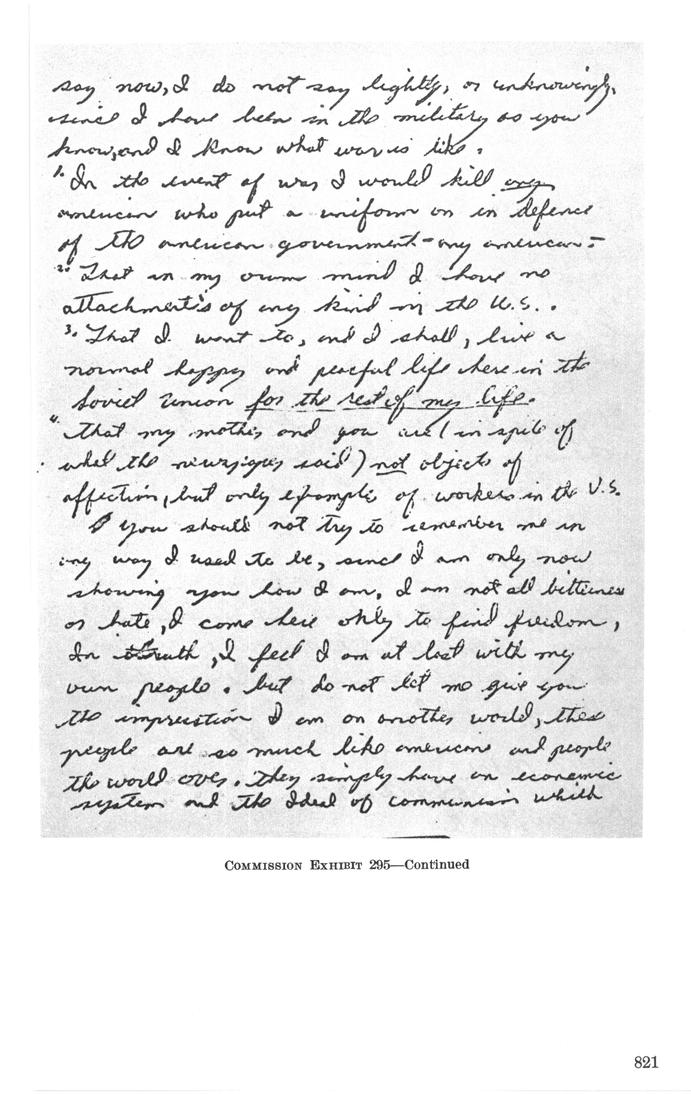 say now, I do not say lightly, or unknowingly,
since I have been in the military as you
know, and I know what war is like.
1. In the event of war I would kill any
american who put a uniform on in defence
of the american government - any american. -
2. That in my own mind I have no
attachment's of any kind in the U.S..
3. That I want to, and I shall, live a
normal happy and peaceful life here in the
Soviet Union for the rest of my life.
4. that my mother and you are (in spite of
what the newspaper said) not objects of
affection, but only example of workers in the U.S.
You should not try to remember me in
any way I used to be, since I am only now
showing you how I am. I am not all bitterness
or hate, I came here only to find freedom,
In truth, I feel I am at last with my
own people. but do not let me give you
the impression I am on another world, these
people are so much like americans and people
the world over. They simply have an economic
system and the Ideal of communism which
COMMISSION EXHIBIT 295—Continued
821